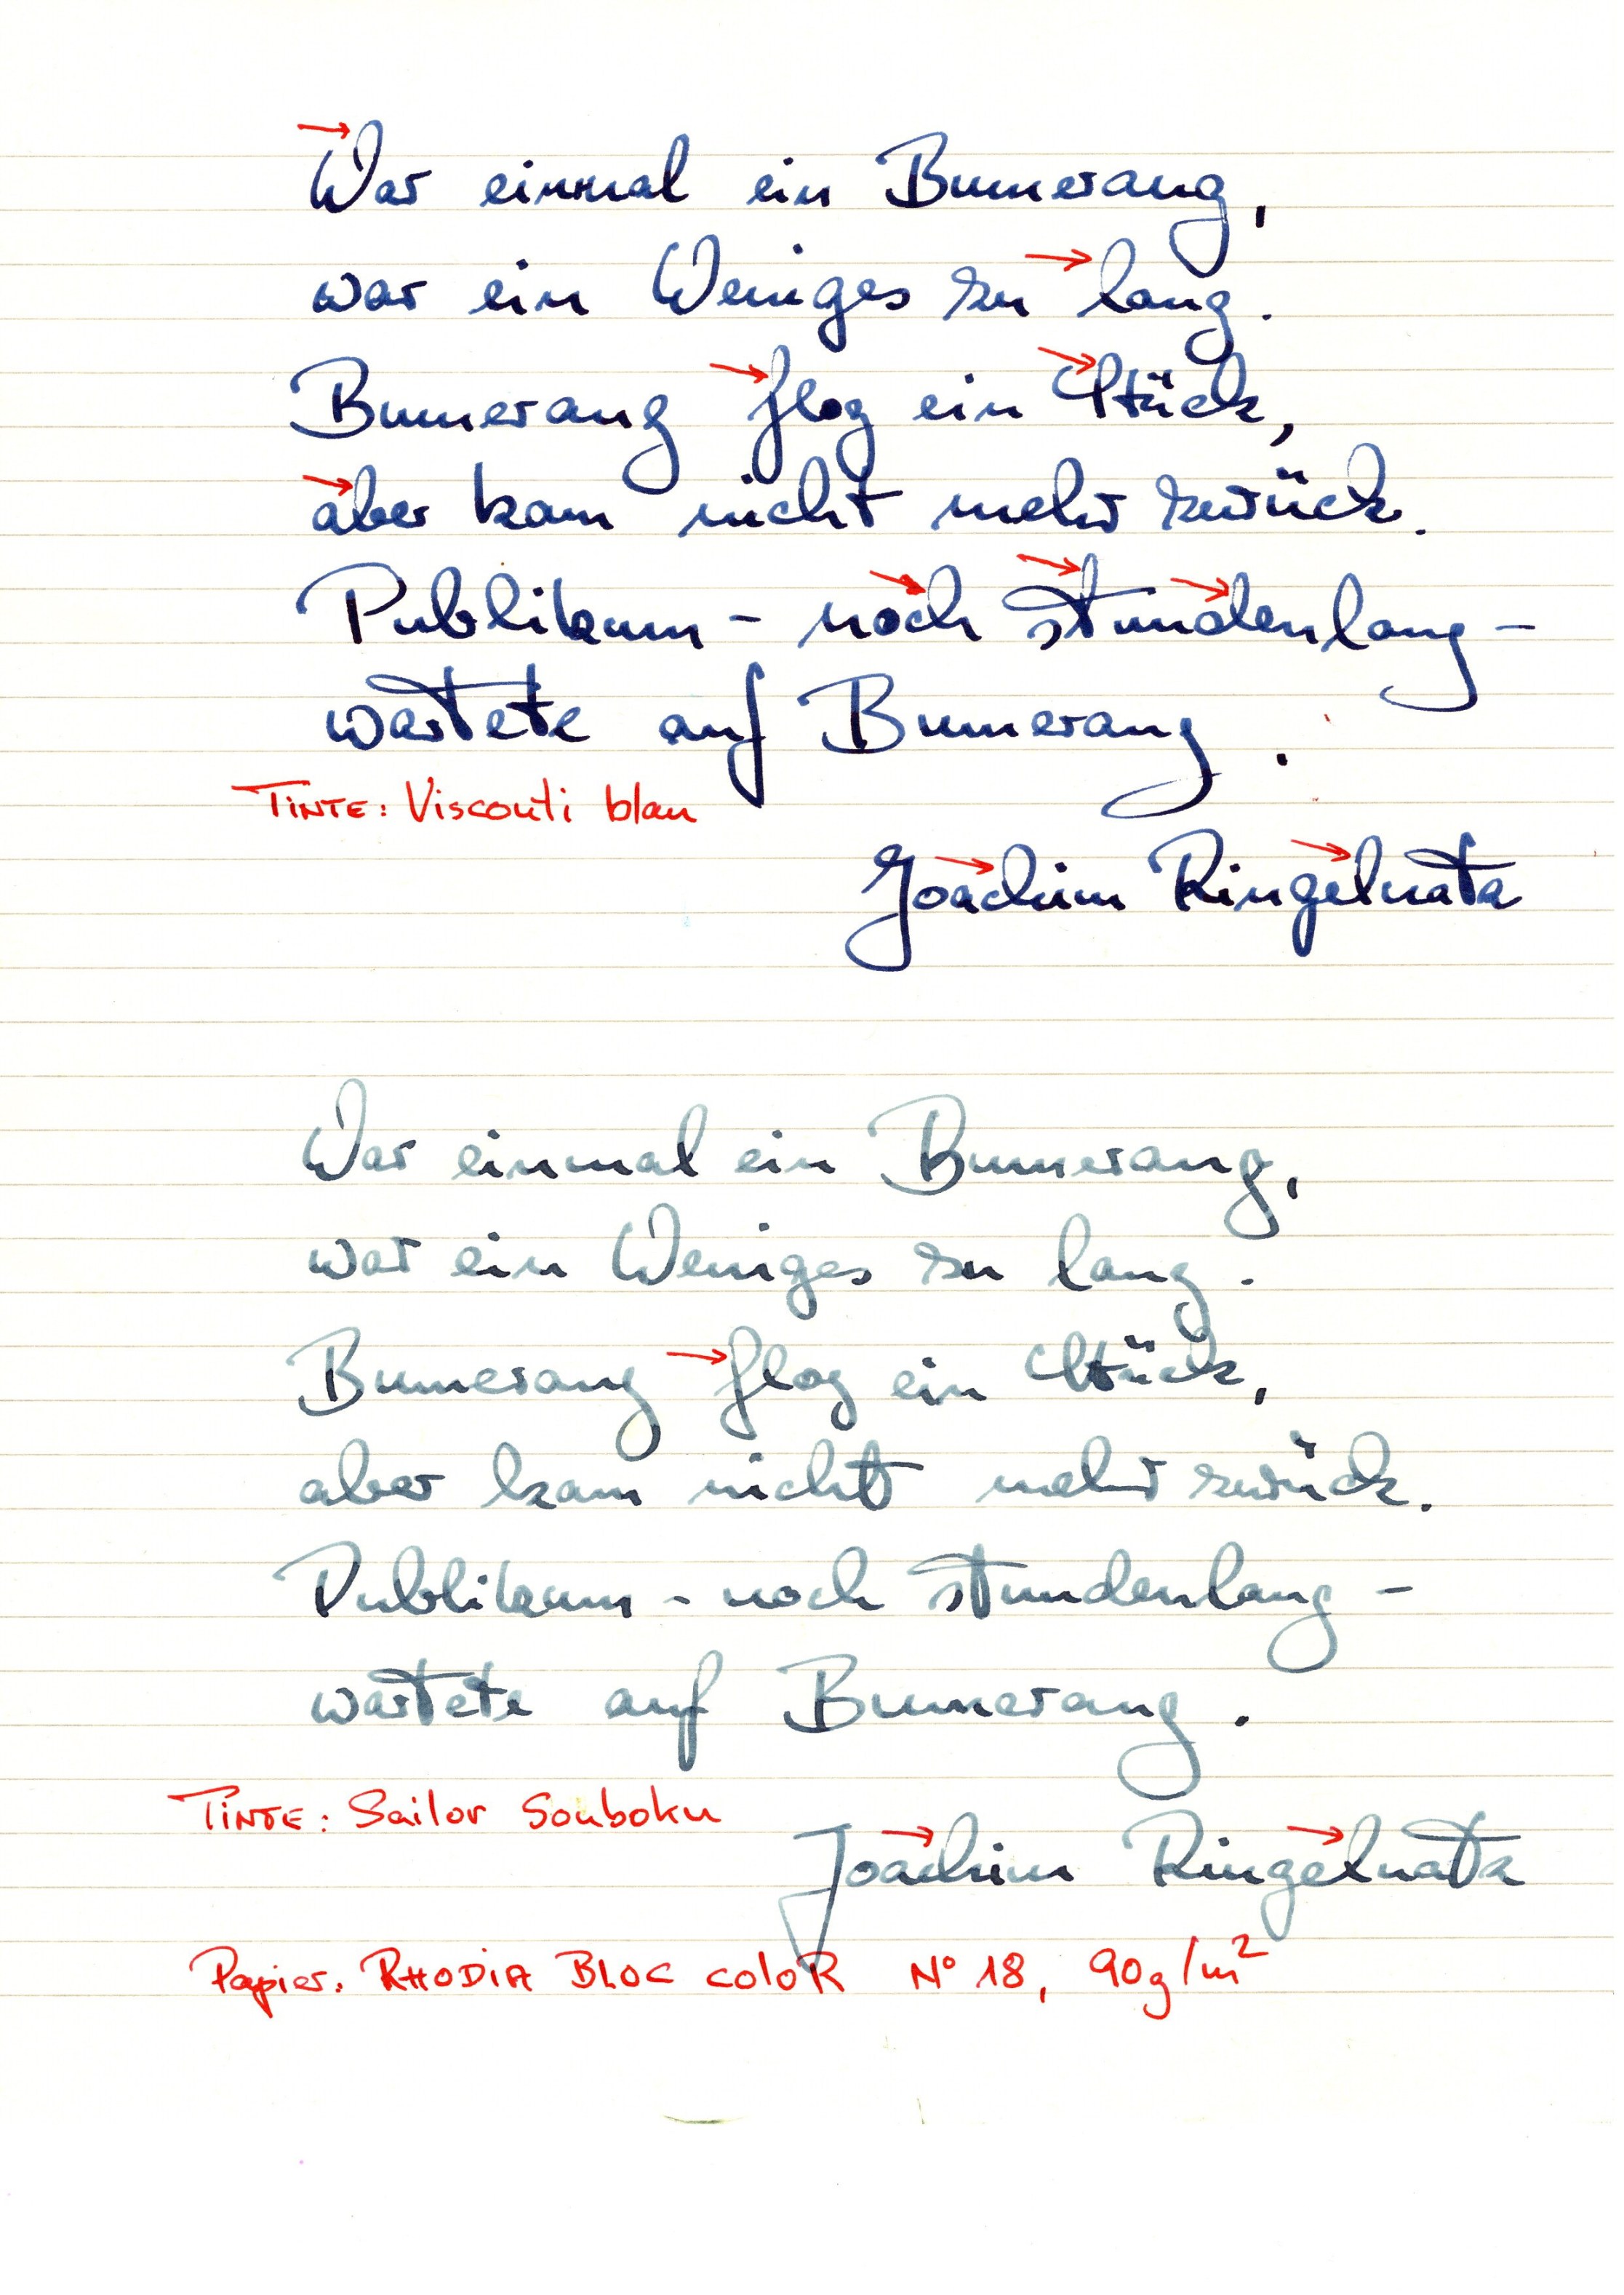 War einmal ein Bumerang,
war ein Weniges zu lang.
Bumerang flog ein Stück,
aber kam nicht mehr zurück.
Publikum – noch stundenlang –
wartete auf Bumerang.
TINTE: Visconti blau
Joachim Ringelnatz
War einmal ein Bumerang,
war ein Weniges zu lang.
Bumerang flog ein Stück,
aber kam nicht mehr zurück.
Publikum - noch stundenlang –
wartete auf Bumerang.
TINTE: Sailor Souboku
Joachim Ringelnatz
Papier: RHODIA BLOC coloR N° 18, 90g/m²